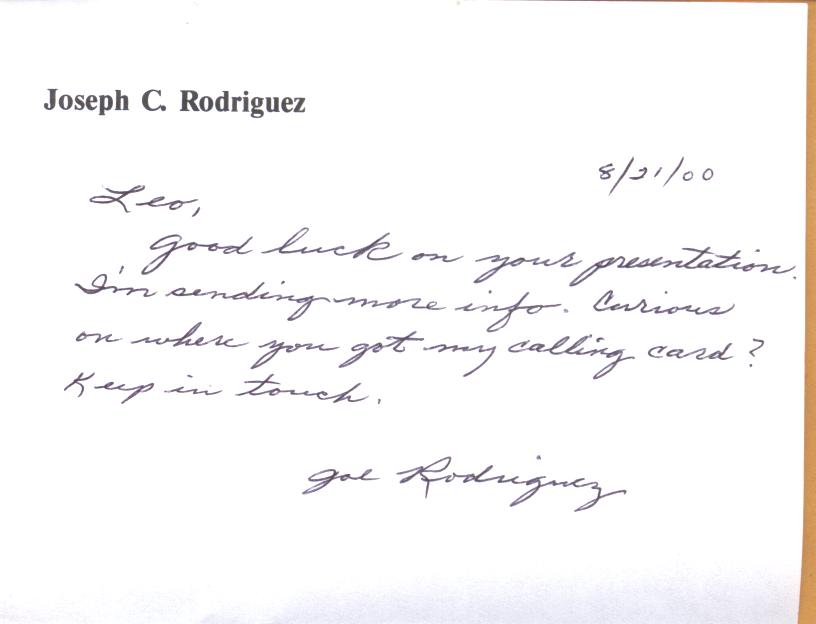 Joseph C. Rodriguez
8/21/00
Leo,
Good luck on your presentation.
I'm sending more info. Curious
on where you got my calling card?
Keep in touch.
Joe Rodriguez